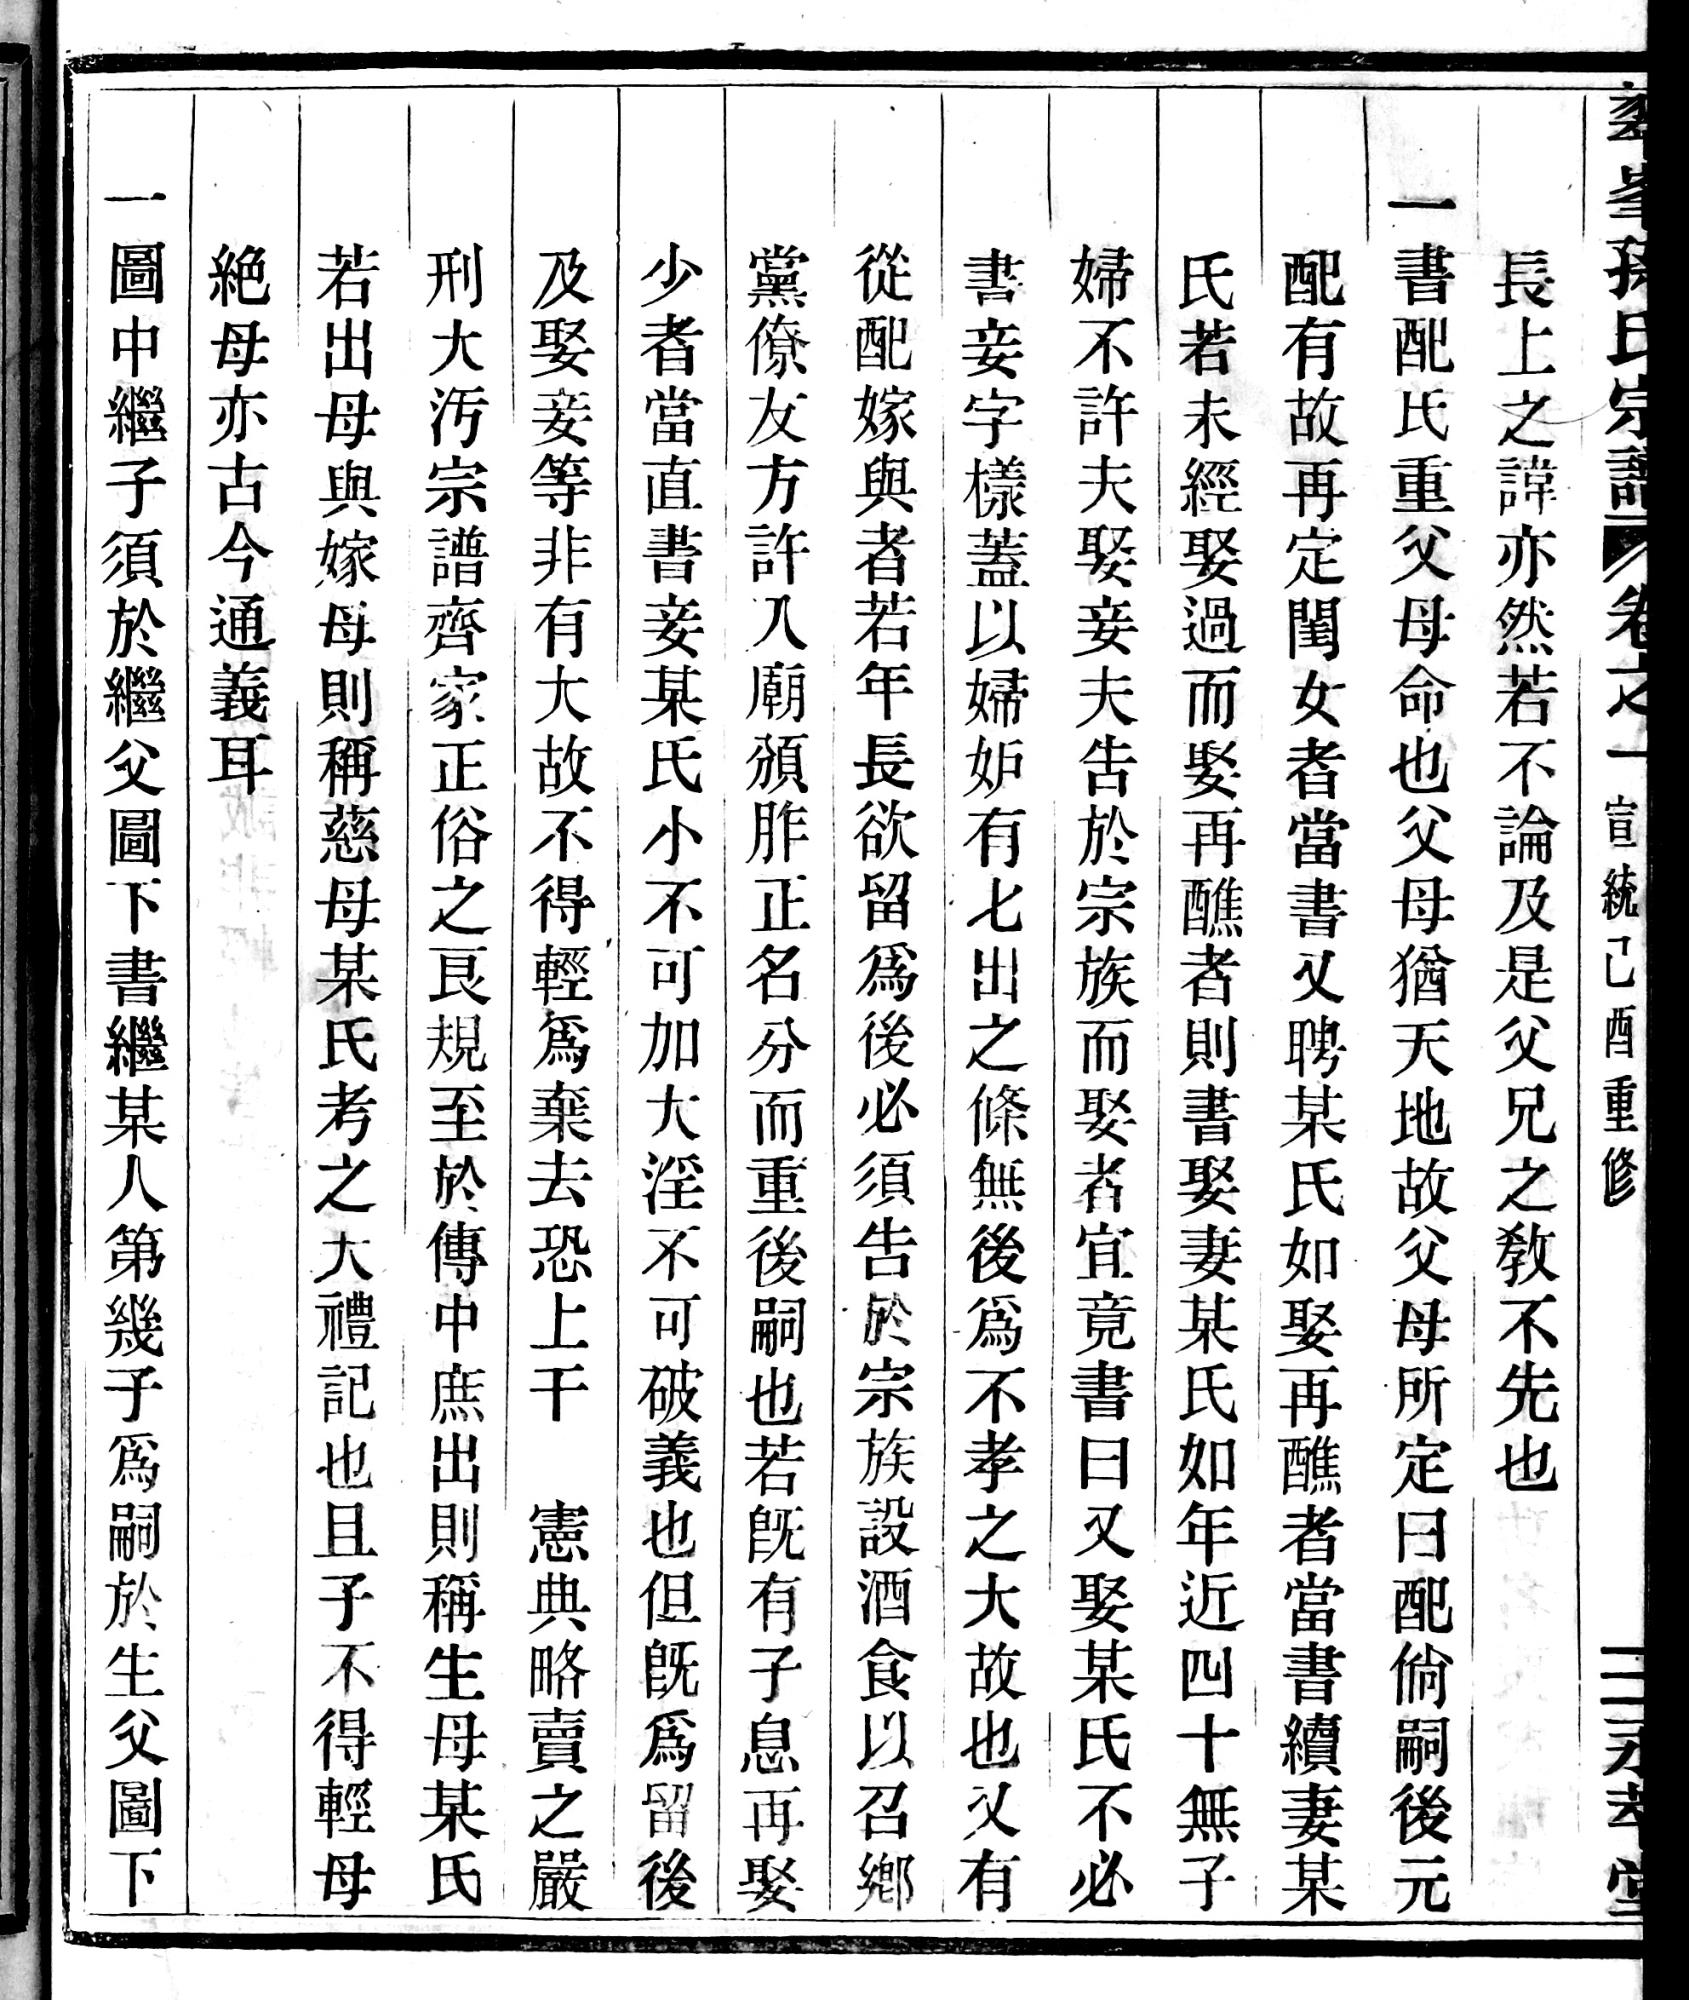 孫氏宗譜 卷之一 宣統己酉重修
長上之諱亦然若不論及是父兄之教不先也
一書配氏重父母命也父母猶天地故父母所定曰配倘嗣後元
配有故再定閨女者當書又聘某氏如娶再醮者當書續妻某
氏若未經娶過而娶再醮者則書娶妻某氏如年近四十無子
婦不許夫娶妾夫告於宗族而娶者宜竟書曰又娶某氏不必
書妾字樣蓋以婦妒有七出之條無後爲不孝之大故也又有
從配嫁與者若年長欲留爲後必須告於宗族設酒食以召鄉
黨僚友方許入廟頒胙正名分而重後嗣也若旣有子息再娶
少者當直書妾某氏小不可加大淫不可破義也但旣爲留後
及娶妾等非有大故不得輕爲棄去恐上干　憲典略賣之嚴
刑大汚宗譜齊家正俗之良規至於傳中庶出則稱生母某氏
若出母與嫁母則稱慈母某氏考之大禮記也且子不得輕母
絶母亦古今通義耳
一圖中繼子須於繼父圖下書繼某人第幾子爲嗣於生父圖下